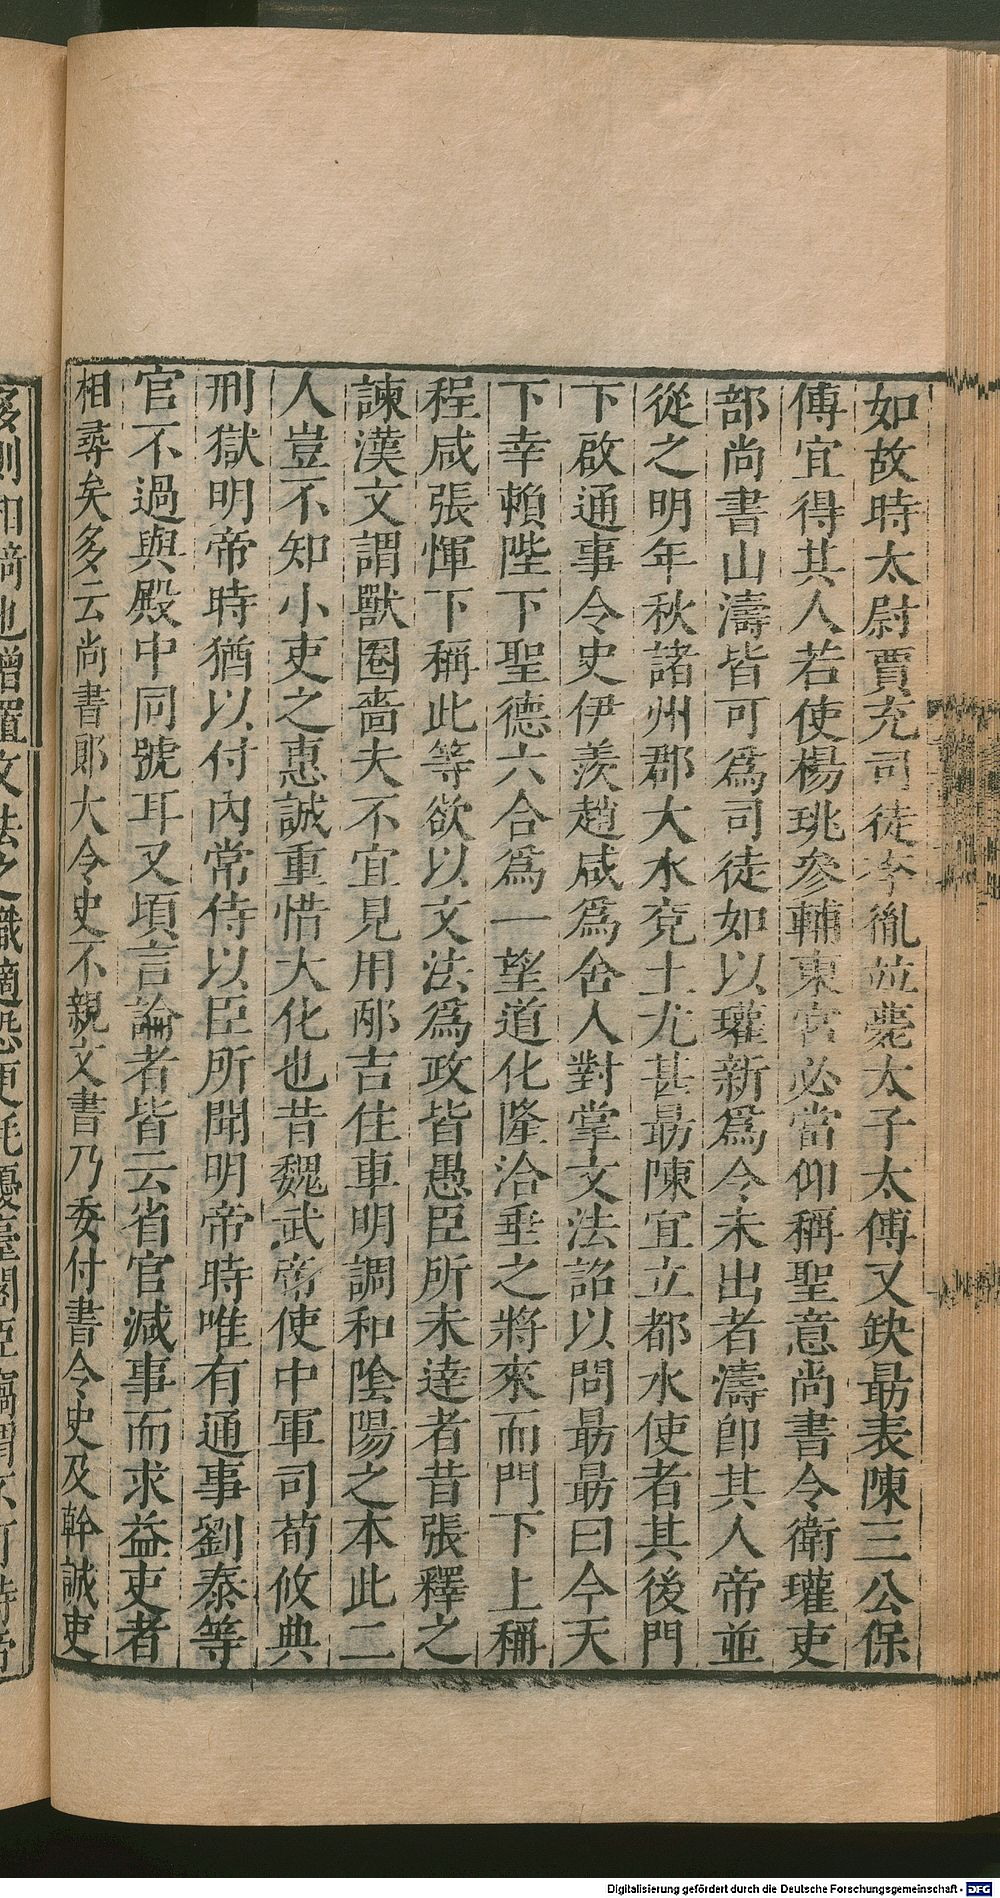 如故時太尉賈充司徒李胤並薨太子太傅又缺勗表陳三公保
傅宜得其人若使楊珧參輔東宮必當仰稱聖意尚書令衛瓘吏
部尚書山濤皆可為司徒如以瓘新為令未出者濤即其人帝並
從之明年秋諸州郡大水兗土尤甚勗陳宜立都水使者其後門
下啟通事令史伊羨趙咸為舍人對掌文法詔以問勗勗曰今天
下幸賴陛下聖德六合為一望道化隆洽垂之將來而門下上稱
程咸張惲下稱此等欲以文法為政皆愚臣所未達者昔張釋之
諫漢文謂獸圈嗇夫不宜見用邴吉住車明調和陰陽之本此二
人豈不知小吏之惠誠重惜大化也昔魏武帝使中軍司荀攸典
刑獄明帝時猶以付內常侍以臣所聞明帝時唯有通事劉泰等
官不過與殿中同號耳又頃言論者皆云省官減事而求益吏者
相尋矣多云尚書郎大令史不親文書乃委付書令史及幹誠吏
Digitalisierung gefördert durch die Deutsche Forschungsgemeinschaft - DFG